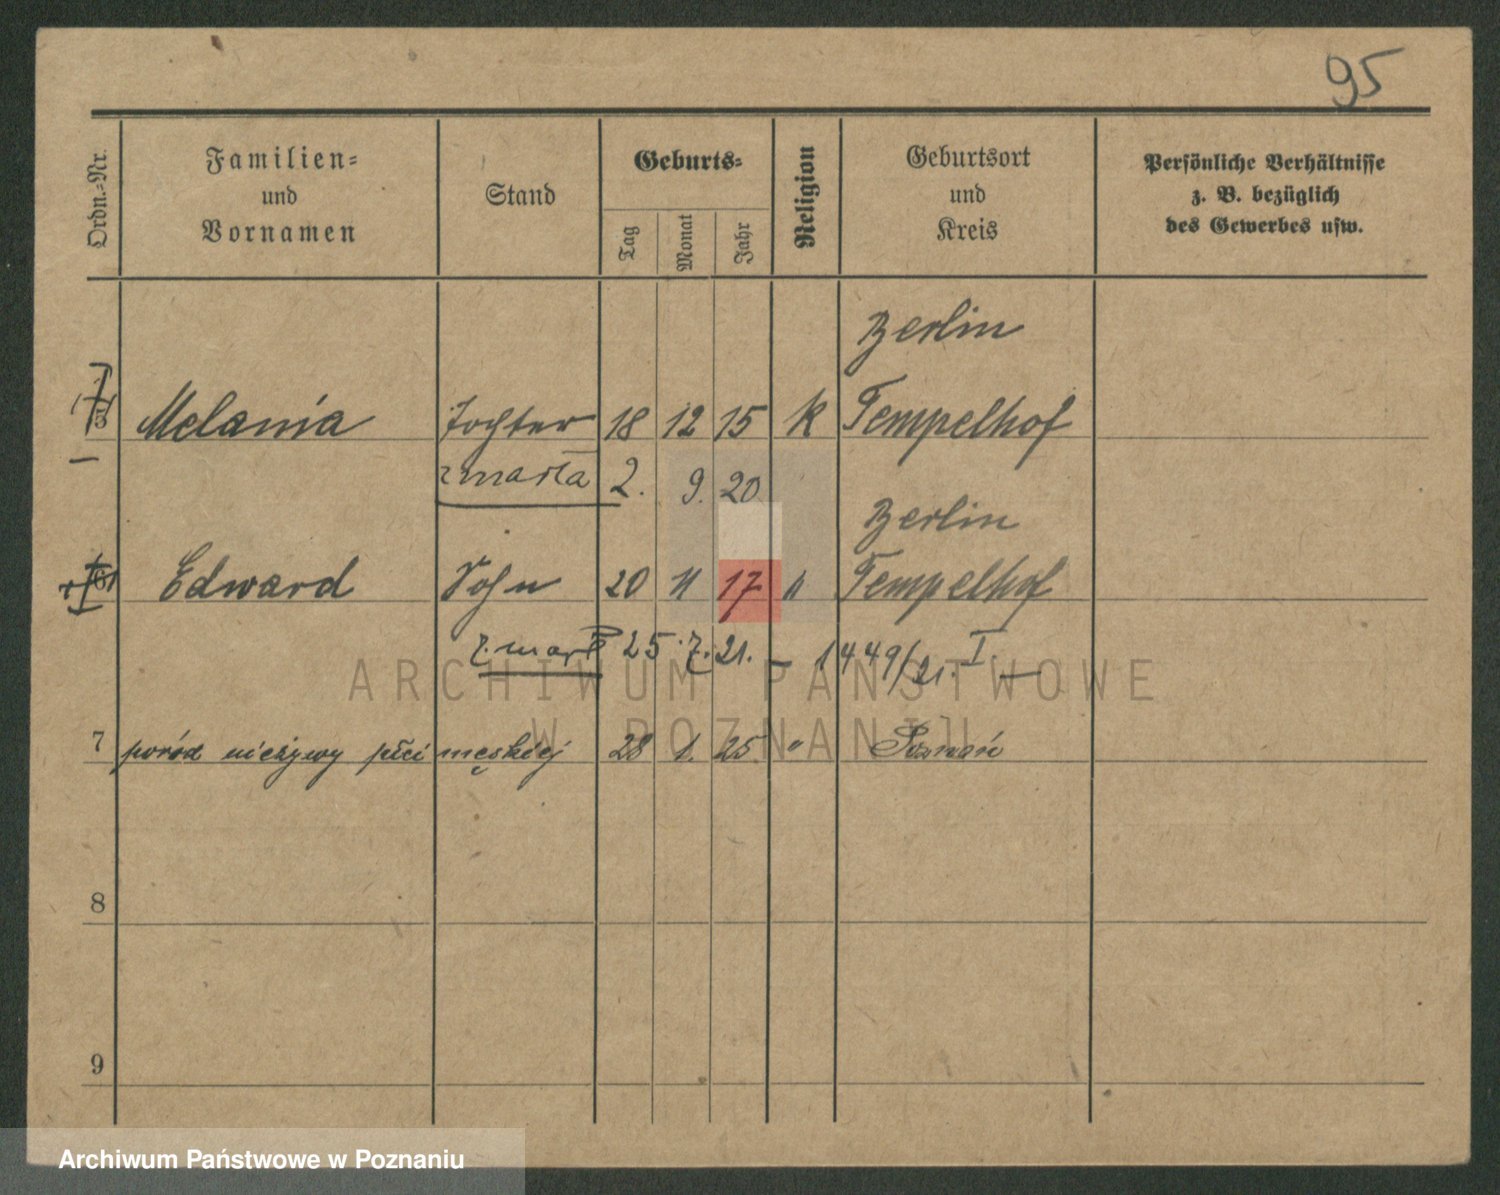 95
Ordn.=Nr.
Familien=
und
Vornamen
Stand
Geburts=
Tag
Monat
Jahr
Religion
Geburtsort
und
Kreis
Persönliche Verhältnisse
z. B. bezüglich
des Gewerbes usw.
Berlin
5 Melania Tochter 18 12 15 K Tempelhof
zmarła 2. 9. 20
Berlin
6 Edward Sohn 20 11 17 " Tempelhof
zmarł 25.7.21. – 1449/21. I. –
ARCHIWUM PAŃSTWOWE
W POZNANIU
7 poród nieżywy płci męskiej 28 1. 25. " Poznań
8
9
Archiwum Państwowe w Poznaniu